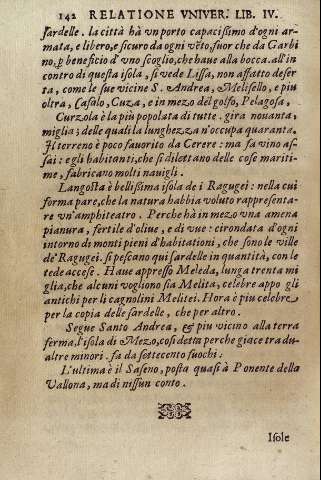 142 RELATIONE VNIVER. LIB. IV.
sardelle. la città hà vn porto capacissimo d'ogni ar-
mata, e libero, e sicuro da ogni vẽto, fuor che da Garbi
no, ꝑ beneficio d'vno scoglio, che haue alla bocca. all'in
contro di questa isola, si vede Lissa, non affatto deser
ta, come le sue vicine S. Andrea, Melisello, e piu
oltra, Casolo, Cuza, e in mezo del golfo, Pelagosa,
Curzola è la più popolata di tutte. gira nouanta,
miglia; delle quali la lunghezza n'occupa quaranta.
Il terreno è poco fauorito da Cerere: ma fa vino as-
sai: e gli habitanti, che si dilettano delle cose mariti-
me, fabricano molti nauigli.
Langosta è bellissima isola de i Ragugei: nella cui
forma pare, che la natura habbia voluto rappresenta-
re vn'amphiteatro. Perche hà in mezo vna amena
pianura, fertile d'oliue, e di vue: cirondata d'ogni
intorno di monti pieni d'habitationi, che sono le ville
de' Ragugei. si pescano qui sardelle in quantità, con le
tede accese. Haue appresso Meleda, lunga trenta mi
glia, che alcuni vogliono sia Melita, celebre appo gli
antichi per li cagnolini Melitei. Hora è piu celebre
per la copia delle sardelle, che per altro.
Segue Santo Andrea, & piu vicino alla terra
ferma, l'isola di Mezo, cosi detta perche giace tra du-
altre minori. fa da settecento fuochi:
L'ultima è il Saseno, posta quasi à Ponente della
Vallona, ma di nissun conto.
Isole